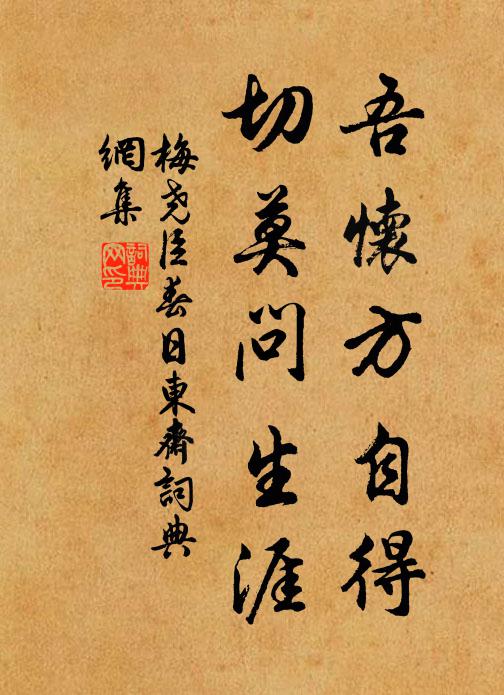 吾懷方自得
切莫問生涯
梅尧臣春日東齋詞典
網集
詞典
网印